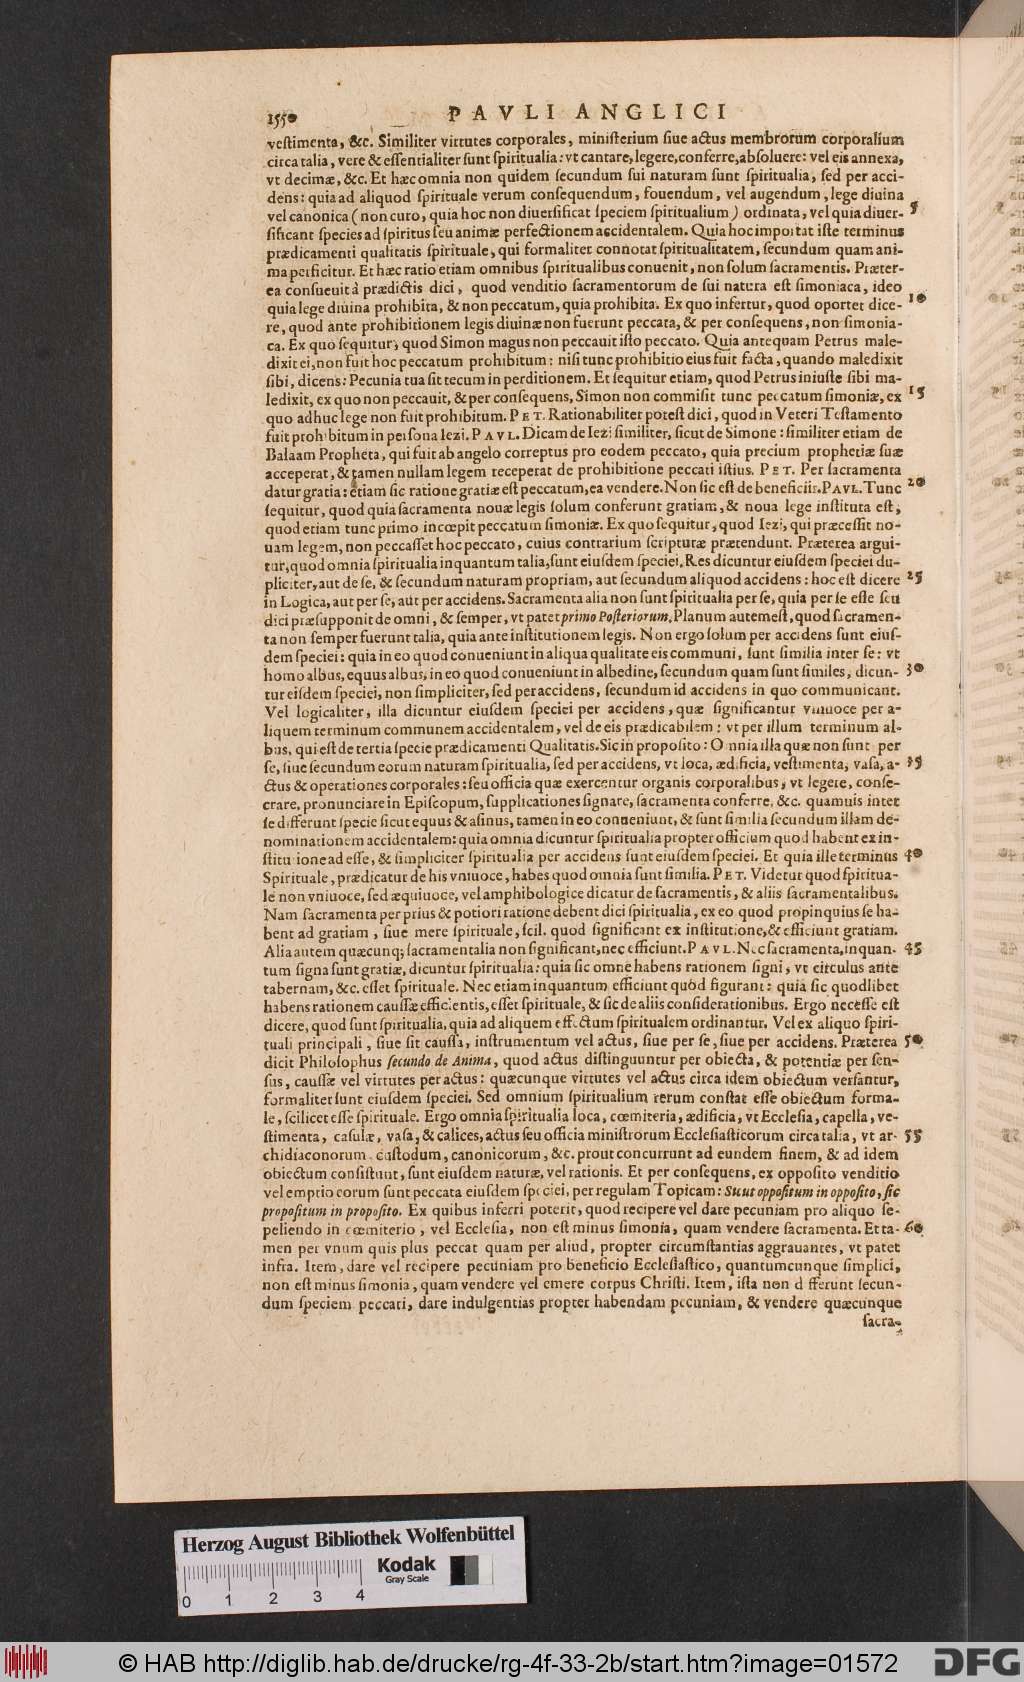 1550 PAVLI ANGLICI
vestimenta, &c. Similiter virtutes corporales, ministerium siue actus membrorum corporalium
circa talia, vere & essentialiter sunt spiritualia: vt cantare, legere, conferre, absoluere: vel eis annexa,
vt decimæ, &c. Et hæc omnia non quidem secundum sui naturam sunt spiritualia, sed per acci-
dens: quia ad aliquod spirituale verum consequendum, fouendum, vel augendum, lege diuina
vel canonica (non curo, quia hoc non diuersificat speciem spiritualium) ordinata, vel quia diuer- 5
sificant species ad spiritus seu animæ perfectionem accidentalem. Quia hoc importat iste terminus
prædicamenti qualitatis spirituale, qui formaliter connotat spiritualitatem, secundum quam ani-
ma perficitur. Et hæc ratio etiam omnibus spiritualibus conuenit, non solum sacramentis. Præter-
ea consueuit à prædictis dici, quod venditio sacramentorum de sui natura est simoniaca, ideo
quia lege diuina prohibita, & non peccatum, quia prohibita. Ex quo infertur, quod oportet dice- 10
re, quod ante prohibitionem legis diuinæ non fuerunt peccata, & per consequens, non simonia-
ca. Ex quo sequitur, quod Simon magus non peccauit isto peccato. Quia antequam Petrus male-
dixit ei, non fuit hoc peccatum prohibitum: nisi tunc prohibitio eius fuit facta, quando maledixit
sibi, dicens: Pecunia tua sit tecum in perditionem. Et sequitur etiam, quod Petrus iniuste sibi ma-
ledixit, ex quo non peccauit, & per consequens, Simon non commisit tunc peccatum simoniæ, ex 15
quo adhuc lege non fuit prohibitum. PET. Rationabiliter potest dici, quod in Veteri Testamento
fuit prohibitum in persona Iezi. PAVL. Dicam de Iezi similiter, sicut de Simone: similiter etiam de
Balaam Propheta, qui fuit ab angelo correptus pro eodem peccato, quia precium prophetiæ suæ
acceperat, & tamen nullam legem receperat de prohibitione peccati istius. PET. Per sacramenta
datur gratia: etiam sic ratione gratiæ est peccatum, ea vendere. Non sic est de beneficiis. PAVL. Tunc 20
sequitur, quod quia sacramenta nouæ legis solum conferunt gratiam, & noua lege instituta est,
quod etiam tunc primo incœpit peccatum simoniæ. Ex quo sequitur, quod Iezi, qui præcessit no-
uam legem, non peccasset hoc peccato, cuius contrarium scripturæ prætendunt. Præterea argui-
tur, quod omnia spiritualia inquantum talia, sunt eiusdem speciei. Res dicuntur eiusdem speciei du-
pliciter, aut de se, & secundum naturam propriam, aut secundum aliquod accidens: hoc est dicere 25
in Logica, aut per se, aut per accidens. Sacramenta alia non sunt spiritualia per se, quia per se esse seu
dici præsupponit de omni, & semper, vt patet primo Posteriorum. Planum autem est, quod sacramen-
ta non semper fuerunt talia, quia ante institutionem legis. Non ergo solum per accidens sunt eius-
dem speciei: quia in eo quod conueniunt in aliqua qualitate eis communi, sunt similia inter se: vt
homo albus, equus albus, in eo quod conueniunt in albedine, secundum quam sunt similes, dicun- 30
tur eisdem speciei, non simpliciter, sed per accidens, secundum id accidens in quo communicant.
Vel logicaliter, illa dicuntur eiusdem speciei per accidens, quæ significantur vniuoce per a-
liquem terminum communem accidentalem, vel de eis prædicabilem: vt per illum terminum al-
bus, qui est de tertia specie prædicamenti Qualitatis. Sic in proposito: Omnia illa quæ non sunt per
se, siue secundum eorum naturam spiritualia, sed per accidens, vt loca, ædificia, vestimenta, vasa, a- 35
ctus & operationes corporales: seu officia quæ exercentur organis corporalibus, vt legere, conse-
crare, pronunciare in Episcopum, supplicationes signare, sacramenta conferre, &c. quamuis inter
se differunt specie sicut equus & asinus, tamen in eo conueniunt, & sunt similia secundum illam de-
nominationem accidentalem: quia omnia dicuntur spiritualia propter officium quod habent ex in-
stitutione ad esse, & simpliciter spiritualia per accidens sunt eiusdem speciei. Et quia ille terminus 40
Spirituale, prædicatur de his vniuoce, habes quod omnia sunt similia. PET. Videtur quod spiritua-
le non vniuoce, sed æquiuoce, vel amphibologice dicatur de sacramentis, & aliis sacramentalibus.
Nam sacramenta per prius & potiori ratione debent dici spiritualia, ex eo quod propinquius se ha-
bent ad gratiam, siue mere spirituale, scil. quod significant ex institutione, & efficiunt gratiam.
Alia autem quæcunq; sacramentalia non significant, nec efficiunt. PAVL. Nec sacramenta, inquan- 45
tum signa sunt gratiæ, dicuntur spiritualia: quia sic omne habens rationem signi, vt circulus ante
tabernam, &c. esset spirituale. Nec etiam inquantum efficiunt quod figurant: quia sic quodlibet
habens rationem caussæ efficientis, esset spirituale, & sic de aliis considerationibus. Ergo necesse est
dicere, quod sunt spiritualia, quia ad aliquem effectum spiritualem ordinantur. Vel ex aliquo spiri-
tuali principali, siue sit caussa, instrumentum vel actus, siue per se, siue per accidens. Præterea 50
dicit Philosophus secundo de Anima, quod actus distinguuntur per obiecta, & potentiæ per sen-
sus, caussæ vel virtutes per actus: quæcunque virtutes vel actus circa idem obiectum versantur,
formaliter sunt eiusdem speciei. Sed omnium spiritualium rerum constat esse obiectum forma-
le, scilicet esse spirituale. Ergo omnia spiritualia loca, cœmiteria, ædificia, vt Ecclesia, capella, ve-
stimenta, casulæ, vasa, & calices, actus seu officia ministrorum Ecclesiasticorum circa talia, vt ar- 55
chidiaconorum, custodum, canonicorum, &c. prout concurrunt ad eundem finem, & ad idem
obiectum consistunt, sunt eiusdem naturæ, vel rationis. Et per consequens, ex opposito venditio
vel emptio eorum sunt peccata eiusdem speciei, per regulam Topicam: Sicut oppositum in opposito, sic
propositum in proposito. Ex quibus inferri poterit, quod recipere vel dare pecuniam pro aliquo se-
peliendo in cœmiterio, vel Ecclesia, non est minus simonia, quam vendere sacramenta. Et ta- 60
men per vnum quis plus peccat quam per aliud, propter circumstantias aggrauantes, vt patet
infra. Item, dare vel recipere pecuniam pro beneficio Ecclesiastico, quantumcunque simplici,
non est minus simonia, quam vendere vel emere corpus Christi. Item, ista non differunt secun-
dum speciem peccati, dare indulgentias propter habendam pecuniam, & vendere quæcunque
sacra-
Herzog August Bibliothek Wolfenbüttel
Kodak
Gray Scale
0 1 2 3 4
© HAB http://diglib.hab.de/drucke/rg-4f-33-2b/start.htm?image=01572
DFG